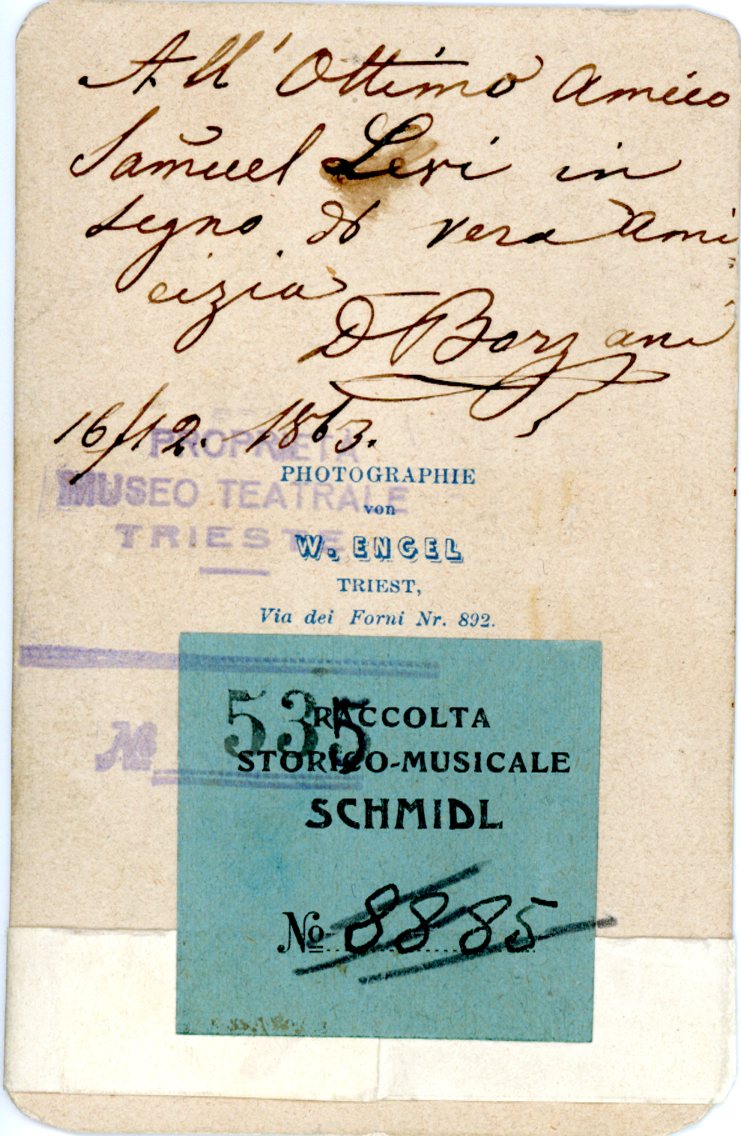 All' Ottimo Amico
Samuel Levi in
segno di vera Ami
cizia
D Borzani
16/12. 1863.
PROPRIETÀ
MUSEO TEATRALE
TRIESTE
PHOTOGRAPHIE
von
W. ENGEL
TRIEST,
Via dei Forni Nr. 892.
No
535
RACCOLTA
STORICO-MUSICALE
SCHMIDL
No 8885